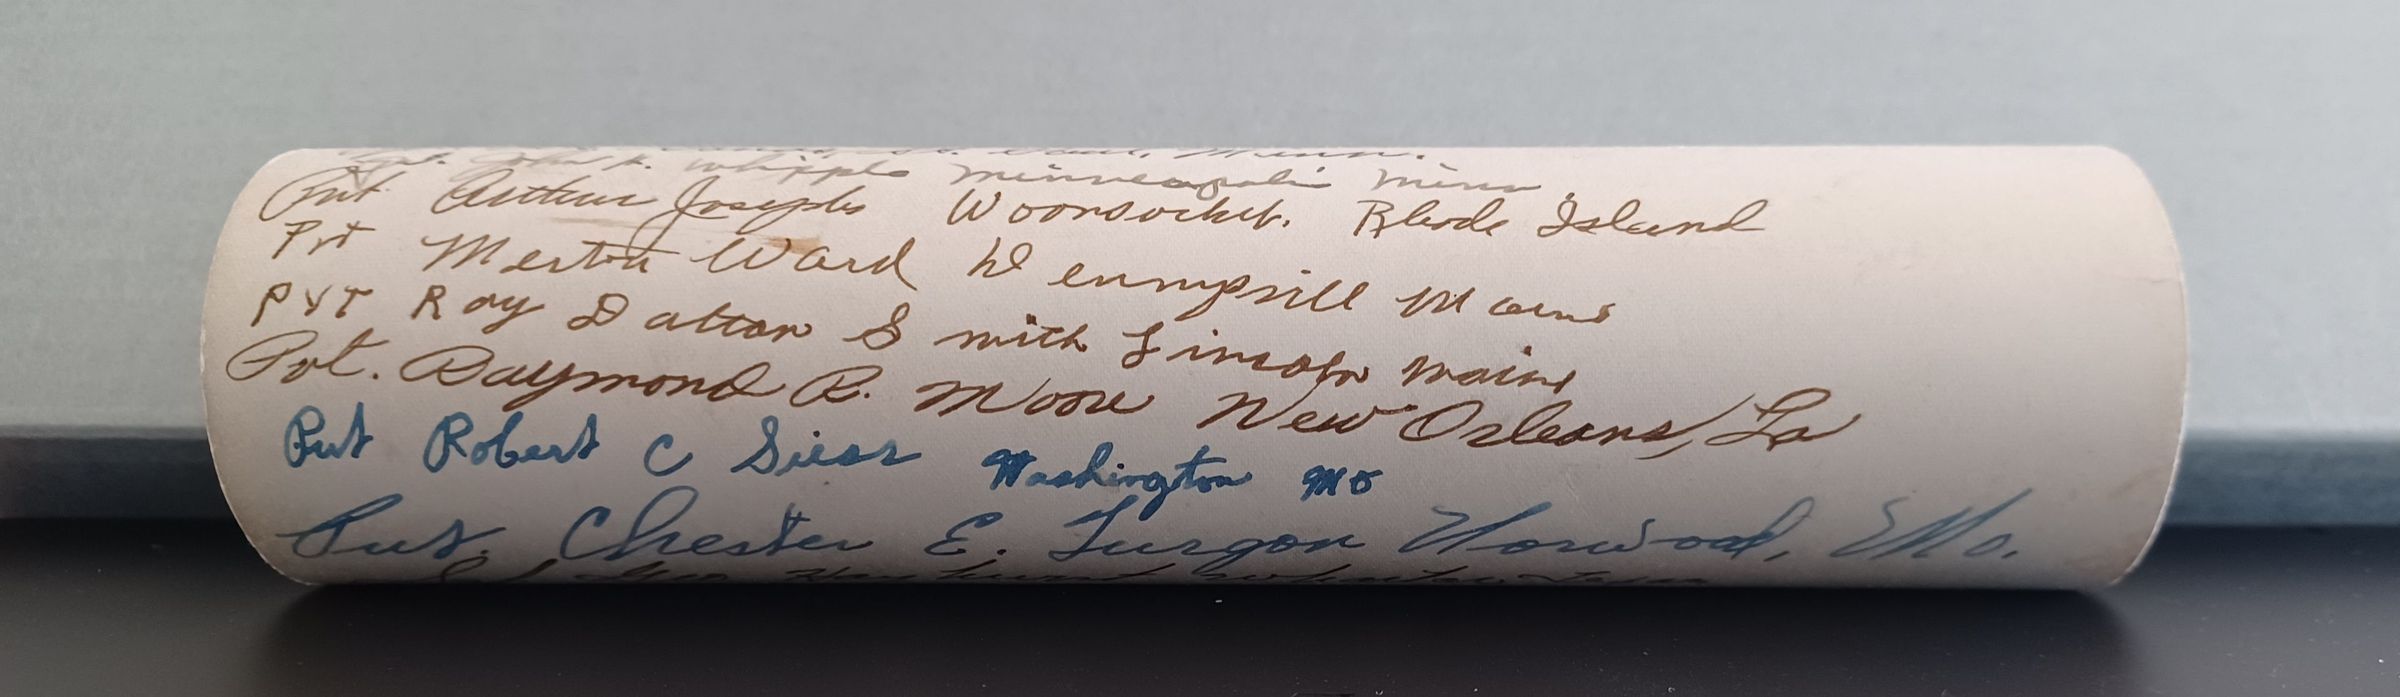 St. Paul, Minn.
Sgt. John K. Whipple Minneapolis Minn
Pvt Arthur Josephs Woonsocket. Rhode Island
Pvt Merton Ward Maine
PVT Ray Dalton Smith Lincoln Maine
Pvt. Raymond R. Moore New Orleans, La
Pvt Robert C Siess Washington Mo
Pvt. Chester E. Turgon Norwood, Mo.
Geo